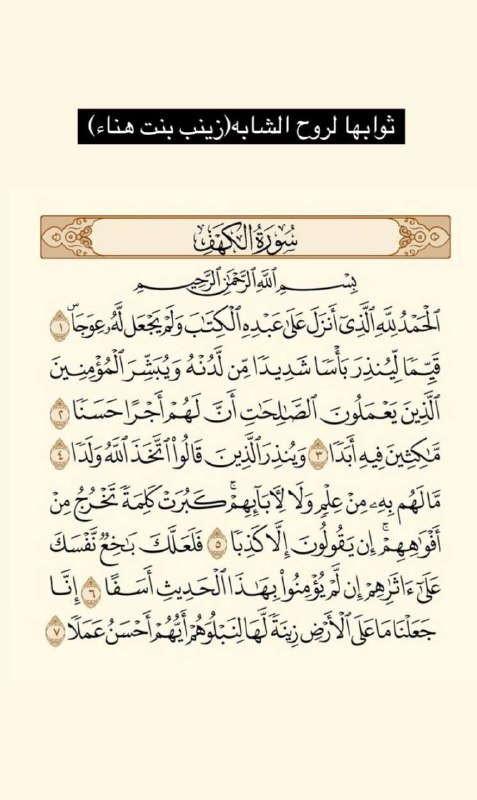 ثوابها لروح الشابه(زينب بنت هناء)
سُورَةُ الكَهْفِ
بِسْمِ اللَّهِ الرَّحْمَٰنِ الرَّحِيمِ
ٱلْحَمْدُ لِلَّهِ ٱلَّذِىٓ أَنزَلَ عَلَىٰ عَبْدِهِ ٱلْكِتَٰبَ وَلَمْ يَجْعَل لَّهُۥ عِوَجَاۜ ١
قَيِّمًا لِّيُنذِرَ بَأْسًا شَدِيدًا مِّن لَّدُنْهُ وَيُبَشِّرَ ٱلْمُؤْمِنِينَ
ٱلَّذِينَ يَعْمَلُونَ ٱلصَّٰلِحَٰتِ أَنَّ لَهُمْ أَجْرًا حَسَنًا ٢
مَّٰكِثِينَ فِيهِ أَبَدًا ٣ وَيُنذِرَ ٱلَّذِينَ قَالُوا۟ ٱتَّخَذَ ٱللَّهُ وَلَدًا ٤
مَّا لَهُم بِهِۦ مِنْ عِلْمٍ وَلَا لِـَٔابَآئِهِمْ ۚ كَبُرَتْ كَلِمَةً تَخْرُجُ مِنْ
أَفْوَٰهِهِمْ ۚ إِن يَقُولُونَ إِلَّا كَذِبًا ٥ فَلَعَلَّكَ بَٰخِعٌ نَّفْسَكَ
عَلَىٰٓ ءَاثَٰرِهِمْ إِن لَّمْ يُؤْمِنُوا۟ بِهَٰذَا ٱلْحَدِيثِ أَسَفًا ٦ إِنَّا
جَعَلْنَا مَا عَلَى ٱلْأَرْضِ زِينَةً لَّهَا لِنَبْلُوَهُمْ أَيُّهُمْ أَحْسَنُ عَمَلًا ٧